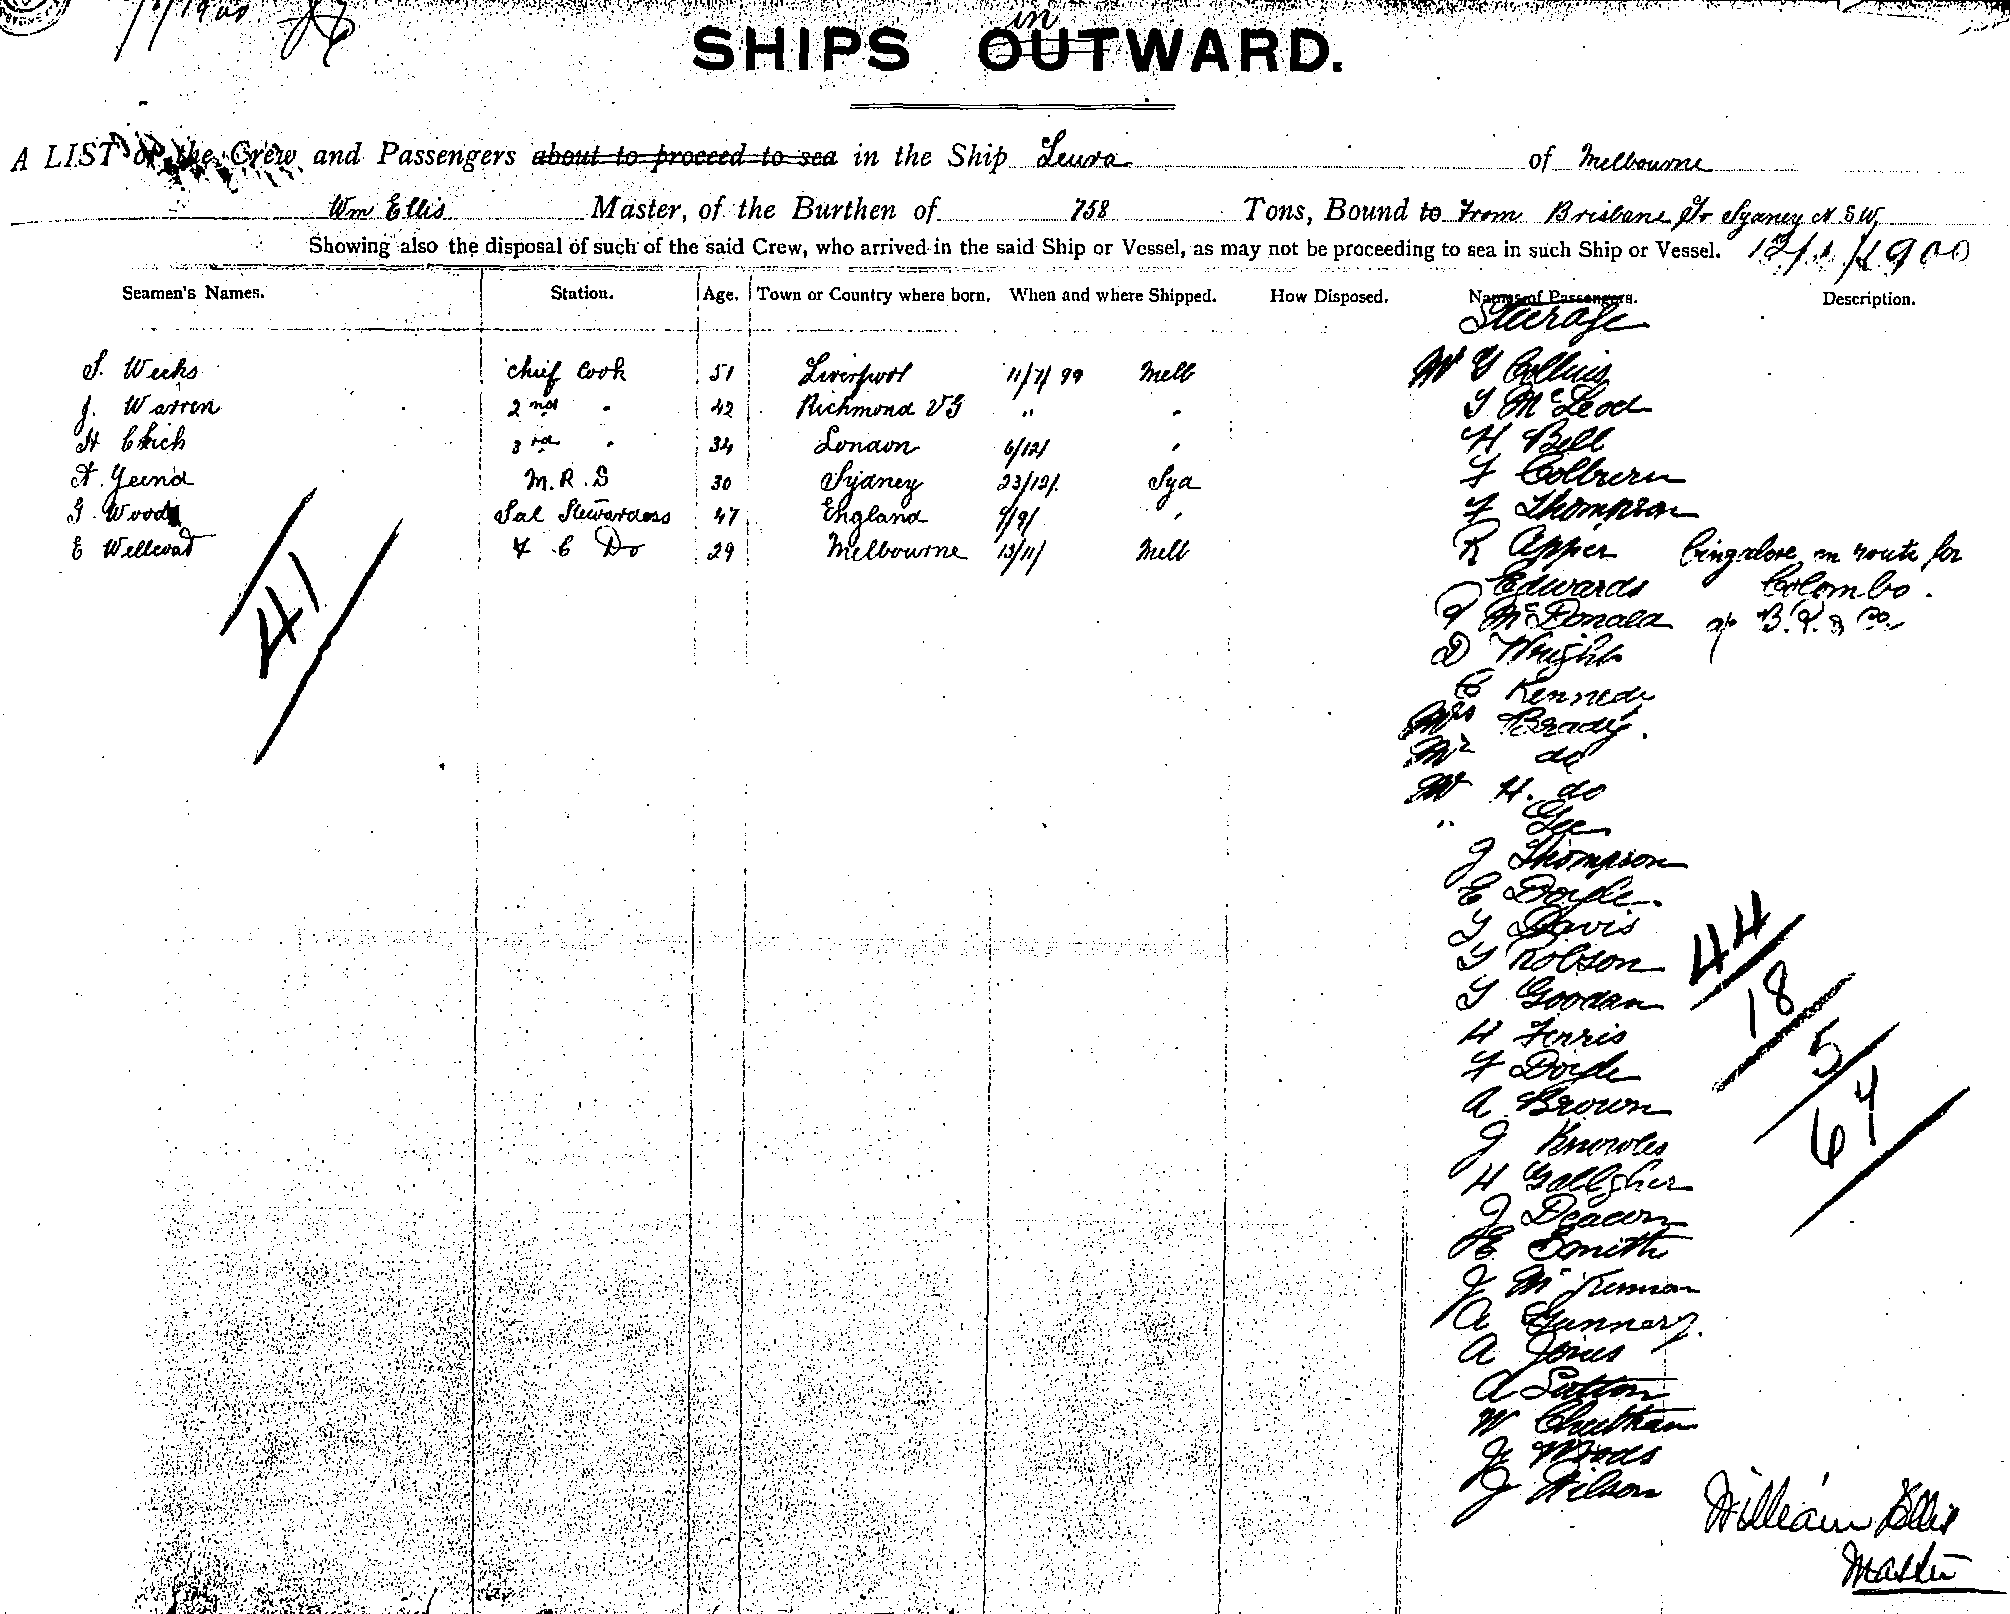 /1900
in
SHIPS OUTWARD.
A LIST of the Crew and Passengers about to proceed to sea in the Ship Leura of Melbourne
Wm Ellis Master, of the Burthen of 758 Tons, Bound to From Brisbane To Sydney N S W
Showing also the disposal of such of the said Crew, who arrived in the said Ship or Vessel, as may not be proceeding to sea in such Ship or Vessel. 12/1/1900
Seamen's Names. Station. Age. Town or Country where born. When and where Shipped. How Disposed. Names of Passengers. Description.
Steerage
S. Weeks chief Cook 51 Liverpool 11/7/99 Melb
J. Warren 2nd " 42 Richmond VG " "
H 3rd " 34 London 6/12/ "
A. Yeend M.R.S 30 Sydney 23/12/ Syd
G. Woods Sal Stewardess 47 England 9/9/ "
E F C Do 29 Melbourne 13/11/ Melb
41
Mr G Collins
T McLeod
H Bell
F Colburn
F Thompson
R Apper Cingalese en route for
Edwards Colombo.
McDonald B. & Co.
D Wright
C Kennedy
Mrs Brady.
Mr do
Mr H. do
" Gee
J Thompson
E Doyle.
T Davis
T Robson
T Goodan
H Ferris
F Doyle
A Brown
J Knowles
H Gallgher
J Deacon
E Smith
J Mc
A Gunnery.
A Jones
A Sutton
W Cheetham
J Woods
J Wilson
44
18
5
67
William Ellis
Master